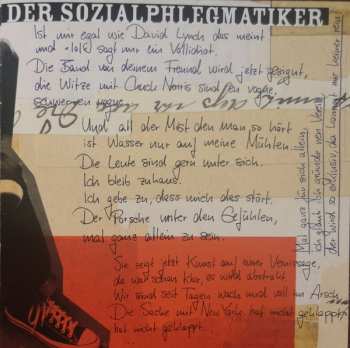 DER SOZIALPHLEGMATIKER
Ist mir egal wie David Lynch das meint
und »lol« sagt nur ein Vollidiot.
Die Band von deinem Freund wird jetzt gesignt,
die Witze mit Chuck Norris sind en vogue,
Und all der Mist den man so hört
ist Wasser nur auf meine Mühlen.
Die Leute sind gern unter sich.
Ich bleib zuhaus.
Ich geb zu, dass mich das stört.
Der Porsche unter den Gefühlen,
mal ganz allein zu sein.
Sie zeigt jetzt Kunst auf einer Vernissage,
da war schon klar, es wird abstrakt.
Wir sind seit Tagen wach und voll im Arsch.
Die Sache mit New York hat nicht geklappt,
hat nicht geklappt.
Mal ganz für sich allein,
ich glaub ich gründe nen Verein
der wird so exklusiv, da kommt nur keiner rein!